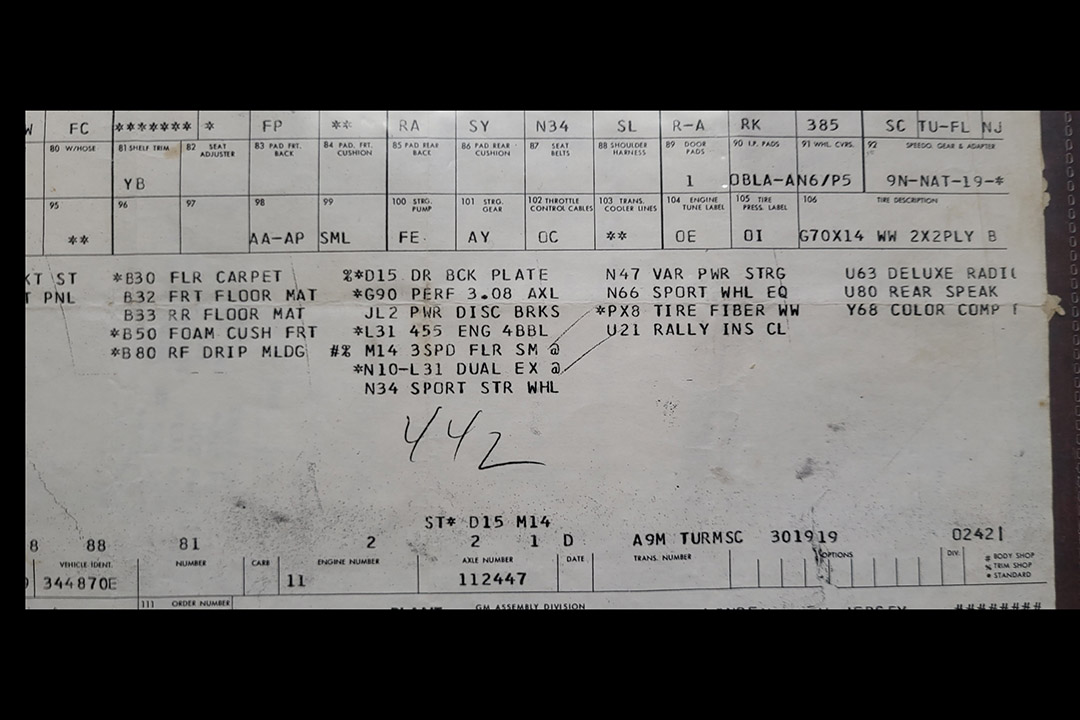 W FC ******* * FP ** RA SY N34 SL R-A RK 385 SC TU-FL NJ
80 W/HOSE 81 SHELF TRIM 82 SEAT ADJUSTER 83 PAD FRT. BACK 84 PAD, FRT. CUSHION 85 PAD REAR BACK 86 PAD REAR CUSHION 87 SEAT BELTS 88 SHOULDER HARNESS 89 DOOR PADS 90 I.P. PADS 91 WHL. CVRS. 92 SPEEDO. GEAR & ADAPTER
YB 1 OBLA-AN6/P5 9N-NAT-19-*
95 96 97 98 99 100 STRG. PUMP 101 STRG. GEAR 102 THROTTLE CONTROL CABLES 103 TRANS. COOLER LINES 104 ENGINE TUNE LABEL 105 TIRE PRESS. LABEL 106 TIRE DESCRIPTION
** AA-AP SML FE AY OC ** OE OI G70X14 WW 2X2PLY B
KT ST *B30 FLR CARPET %*D15 DR BCK PLATE N47 VAR PWR STRG U63 DELUXE RADI
T PNL B32 FRT FLOOR MAT *G90 PERF 3.08 AXL N66 SPORT WHL EQ U80 REAR SPEAK
B33 RR FLOOR MAT JL2 PWR DISC BRKS *PX8 TIRE FIBER WW Y68 COLOR COMP
*B50 FOAM CUSH FRT *L31 455 ENG 4BBL U21 RALLY INS CL
*B80 RF DRIP MLDG #% M14 3SPD FLR SM @
*N10-L31 DUAL EX @
N34 SPORT STR WHL
442
ST* D15 M14
8 88 81 2 2 1 D A9M TURMSC 301919 02421
VEHICLE IDENT. NUMBER CARB ENGINE NUMBER AXLE NUMBER DATE TRANS. NUMBER OPTIONS DIV. # BODY SHOP
% TRIM SHOP
* STANDARD
344870E 11 112447
111 ORDER NUMBER PLANT GM ASSEMBLY DIVISION JERSEY ########